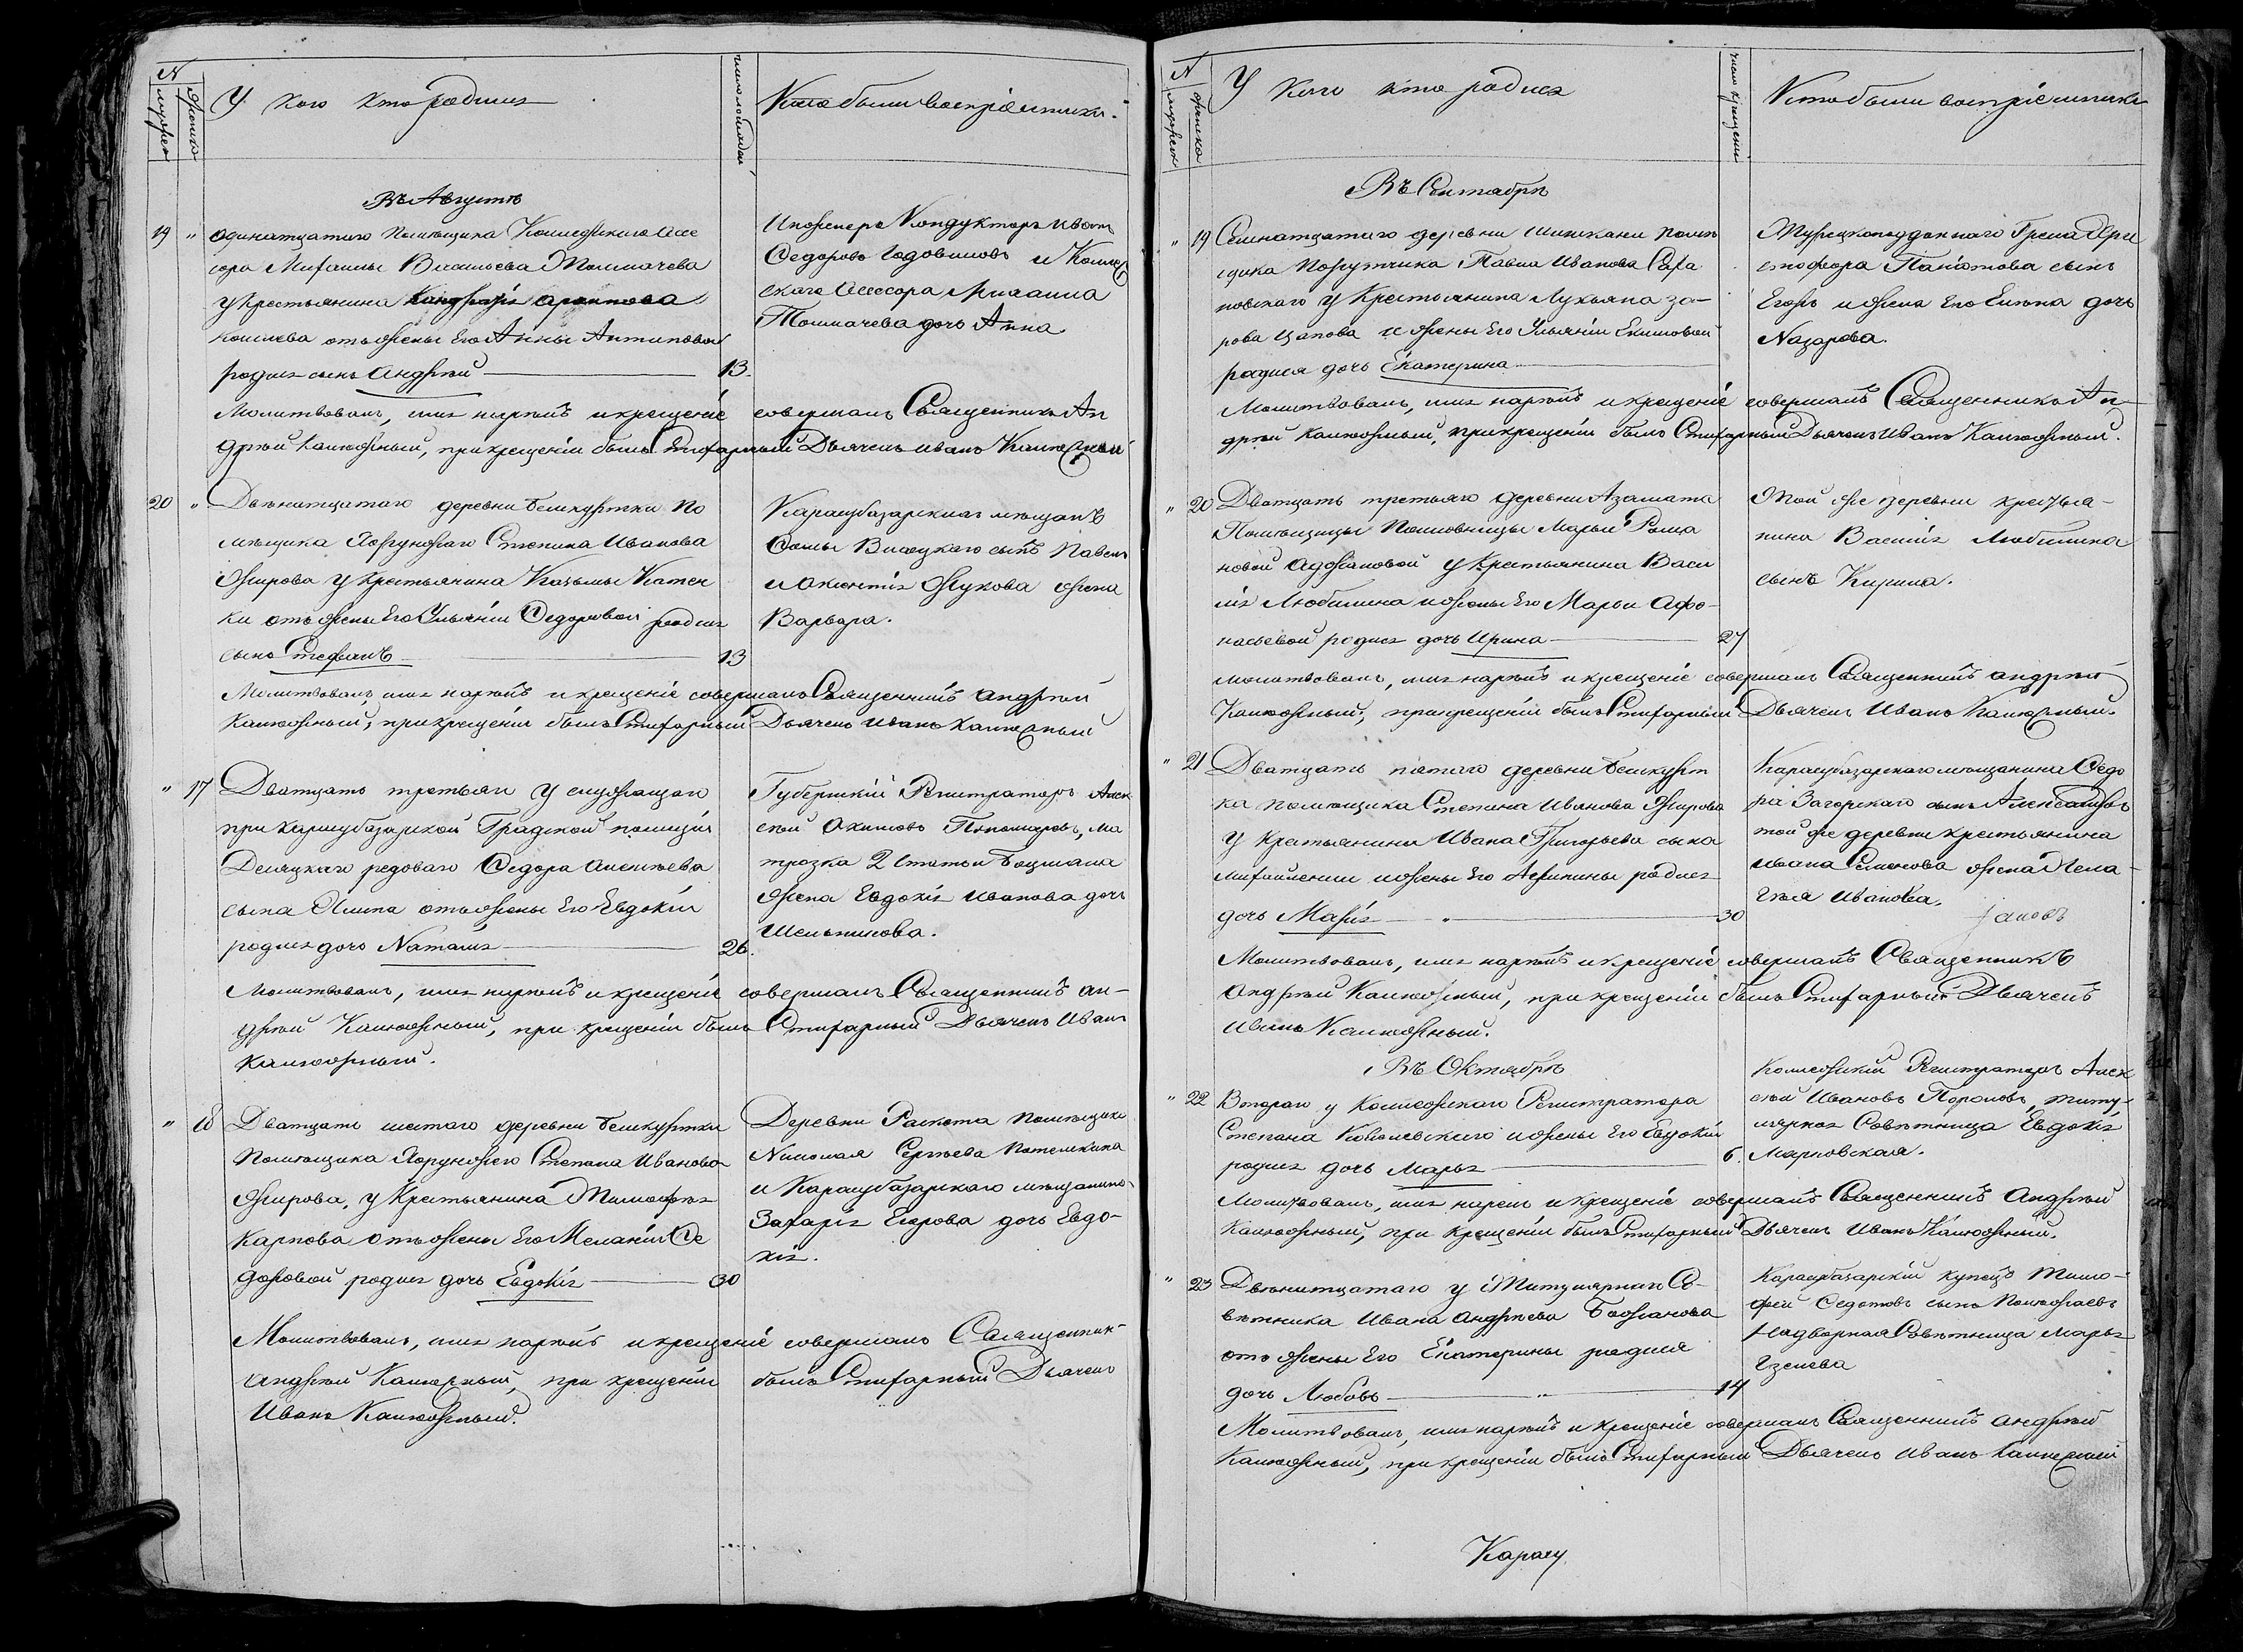 N
мужеск
женска
У кого кто родился
Кто были воспріемники.
Въ Августѣ
19 " одинатцатаго помѣщика Коллежскаго Асес
сора Михаилы Васильева Томачева
у крестьянина
отъ жены его Анны Антиповой
родился сынъ Андрѣй 13.
Инженеръ Кондукторъ Иванъ
Федоровъ и Коллеж
скаго Асессора Михаила
Томачева дочь Анна
Молитвовалъ, имя нарѣкъ и крещеніе совершалъ Священникъ Ан
дрѣй Калюжный, при крещеніи былъ Стихарный Дьячекъ Иванъ Калюжный
20 " Двѣнатцатаго деревни Бешкуртки по
мѣщика Степана Иванова
Жирова у крестьянина Козьмы
ки отъ жены его Ульяніи Федоровой родился
сынъ Стефанъ 13
Карасубазарскаго мѣщанъ
сынъ Павелъ
и Жукова жена
Варвара.
Молитвовалъ, имя нарѣкъ и крещеніе совершалъ Священникъ Андрѣй
Калюжный, при крещеніи былъ Стихарный Дьячекъ Иванъ Калюжный
" 17 Дватцать третьяго у служащаго
при Карасубазарской Градской полиціи
редоваго Федора Алексѣева
сына отъ жены его Евдокіи
родилась дочь Наталія 26.
Губернскій Регистраторъ Алек
сѣй Акимовъ Пономаревъ, ма
трозка 2 статьи Боцмана
жена Евдокія Иванова дочь
Шелиникова.
Молитвовалъ, имя нарѣкъ и крещеніе совершалъ Священникъ Ан-
дрѣй Калюжный, при крещеніи былъ Стихарный Дьячекъ Иванъ
Калюжный.
" 18 Дватцать шестаго деревни Бешкуртки
помѣщика Степана Иванова
Жирова, у крестьянина Тимофея
Карпова отъ жены его Меланіи Фе
доровой родилась дочь Евдокія 30
Деревни помѣщика
Николая Сергѣева Потемкина
и Карасубазарскаго мѣщанина
Захарія Егорова дочь Евдо-
кія.
Молитвовалъ, имя нарѣкъ и крещеніе совершалъ Священник
Андрѣй Калюжный, при крещеніи былъ Стихарный Дьячекъ
Иванъ Калюжный.
N
мужеска
женска
У кого кто родился
число крещенія
Кто были воспріемники
Въ Сентябрѣ
" 19 Семнатцатаго деревни Шишкани помѣ
щика Порутчика Павла Иванова
у крестьянина Лукьяна за-
рова и жены его Ульяніи Екимовой
родилася дочь Екатерина
Турецкоподданнаго Грека Хри
стофора сынъ
Егоръ и жена его Елена дочь
Назарова.
Молитвовалъ, имя нарѣкъ и крещеніе совершалъ Священникъ Ан-
дрѣй Калюжный, при крещеніи былъ Стихарный Дьячекъ Иванъ Калюжный.
" 20 Дватцать третьяго деревни Азамата
Помѣщицы Полковницы Марьи Рома
новой у крестьянина Васи
лія Любимина и жены его Марьи Афо-
насьевой родилась дочь Ирина 27
Той же деревни крестья-
нина Василія Любимина
сынъ Кирила.
Молитвовалъ, имя нарѣкъ и крещеніе совершалъ Священникъ Андрѣй
Калюжный, при крещеніи былъ Стихарный Дьячекъ Иванъ Калюжный.
" 21 Дватцать пятаго деревни Бешкурт
ка помѣщика Степана Иванова Жирова
у крестьянина Ивана Григорьева сына
и жены его Агрипины родилась
дочь Марія 30
Карасубазарскаго мѣщанина Федо
ра Загорскаго сынъ Александръ
той же деревни крестьянина
Ивана Семенова жена Пела-
гѣя Иванова.
Молитвовалъ, имя нарѣкъ и крещеніе совершалъ Священникъ
Андрѣй Калюжный, при крещеніи былъ Стихарный Дьячекъ
Иванъ Калюжный.
Въ Октябрѣ
" 22 Втораго у Коллежскаго Регистратора
Степана и жены его Евдокіи
родилась дочь Марья 6.
Коллежскій Регистраторъ Алек
сѣй Ивановъ титу-
лярная Совѣтница Евдокія
Марковская.
Молитвовалъ, имя нарекъ и крещеніе совершалъ Священникъ Андрѣй
Калюжный, при крещеніи былъ Стихарный Дьячекъ Иванъ Калюжный.
" 23 Двѣнатцатаго у Титулярнаго Со-
вѣтника Ивана Андрѣева Божанова
отъ жены его Екатерины родилася
дочь Любовь 14
Карасубазарскій купецъ Тимо-
фей Федотовъ сынъ
Надворная Совѣтница Марья
Молитвовалъ, имя нарѣкъ и крещеніе совершалъ Священникъ Андрѣй
Калюжный, при крещеніи былъ Стихарный Дьячекъ Иванъ Калюжный
Карасу